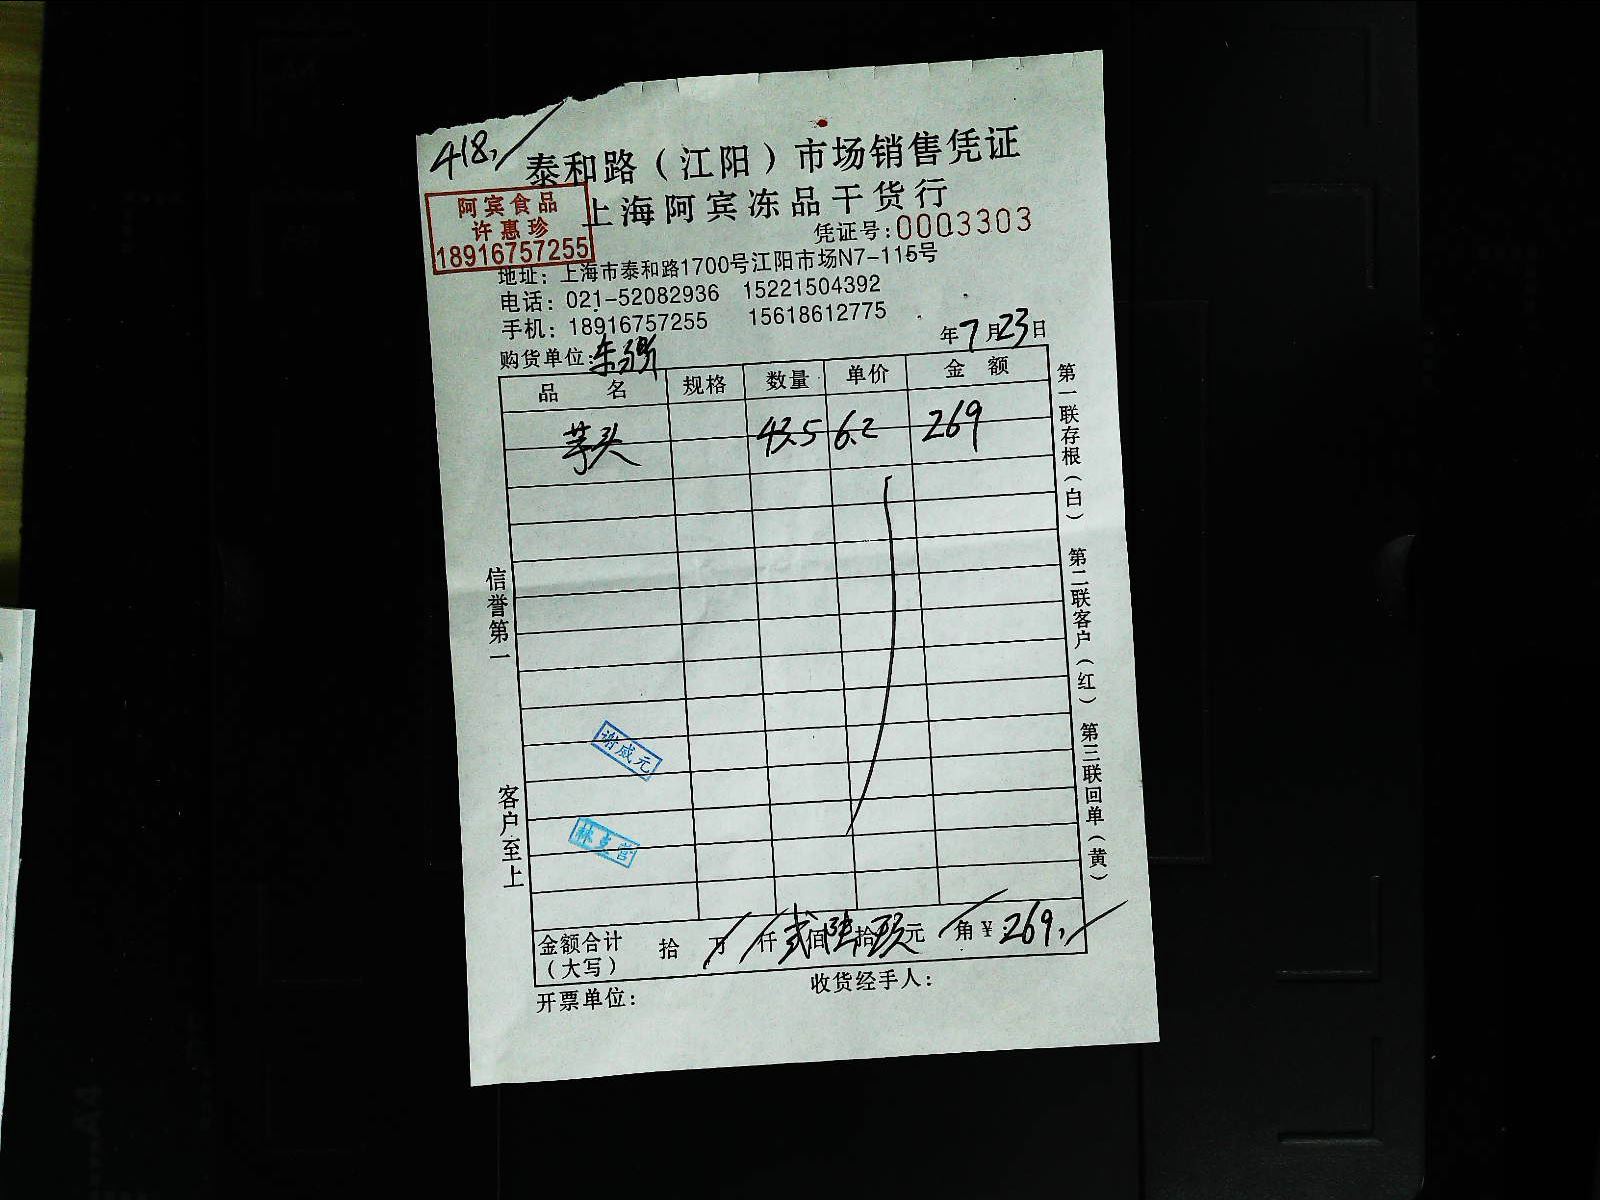 418,
泰和路（江阳）市场销售凭证
上海阿宾冻品干货行
阿宾食品
许惠珍
18916757255
凭证号:0003303
地址：上海市泰和路1700号江阳市场N7-115号
电话：021-52082936 15221504392
手机：18916757255 15618612775
年7月23日
购货单位:
品名 规格 数量 单价 金额
芋头 43.5 6.2 269
信誉第一
客户至上
第一联存根（白） 第二联客户（红） 第三联回单（黄）
谢威元
金额合计（大写） 拾 万 仟 贰佰陆拾玖元 角 ¥:269,
开票单位： 收货经手人：